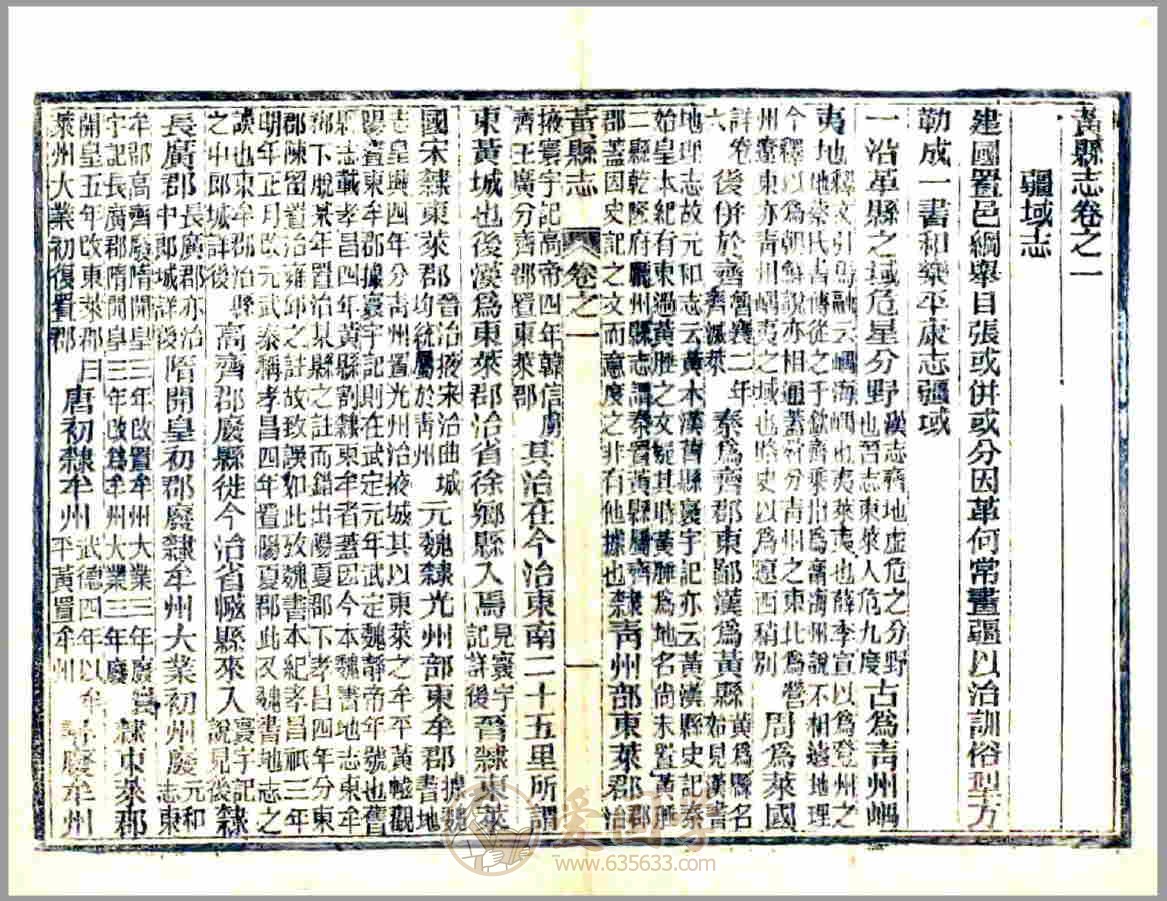 黃縣志卷之一
疆域志
建國置邑綱舉目張或併或分因革何常畫疆以治訓俗型方
勒成一書和樂平康志疆域
一沿革縣之域危星分野漢志齊地虛危之分野也晉志東萊人危九度古為青州嵎
夷也釋文引馬融云嵎海嵎也夷萊夷也薛季宣以為登州之地蔡氏書傳從之于欽齊乘指為甯海州說不相遠地理
今釋以為朝鮮說亦相通蓋虞分青州之東北為營州遼東亦青州嵎夷之域也路史以為遼西稍別周為萊國
詳卷六後併於齊魯襄二年齊滅萊秦為齊郡東鄙漢為黃縣黃為縣名始見漢書
地理志故元和志云黃本漢舊縣寰宇記亦云黃漢縣史記秦始皇本紀有東過黃腄之文疑其時黃腄為地名尚未置黃
二縣乾隆府廳州縣志謂秦置黃縣屬齊郡蓋因史記之文而意度之非有他據也隸青州部東萊郡郡治
黃縣志 卷之一 一
掖寰宇記高帝四年韓信虜齊王廣分齊郡置東萊郡其治在今治東南二十五里所謂
東黃城也後漢為東萊郡治省徐鄉縣入焉見寰宇記詳後晉隸東萊
國宋隸東萊郡晉治掖宋治曲城均統屬於青州元魏隸光州部東牟郡據魏書地
志皇興四年分青州置光州治掖城其以東萊之牟平黃㡉觀陽置東牟郡據寰宇記則在武定元年武定魏靜帝年號也舊
縣志載孝昌四年黃縣割隸東牟者蓋因今本魏書地志東牟鄉下脫某年置治某縣之註而錯出陽夏郡下孝昌四年分東
郡陳留置治雍邱之註故致誤如此攷魏書本紀孝昌祇三年明年正月改元武泰稱孝昌四年置陽夏郡此又魏書地志之
誤也東牟郡治縣之中郎城詳後高齊郡廢縣徙今治省㡉縣來入寰宇記說見後隸
長廣郡長廣郡亦治中郎城詳後隋開皇初郡廢隸牟州大業初州廢元和志東
牟郡高齊廢隋開皇三年改置牟州大業三年廢寰宇記長廣郡隋開皇三年改為牟州大業三年廢隸東萊郡
開皇五年改東萊郡曰萊州大業初復置郡唐初隸牟州武德四年以牟平黃置牟州尋廢牟州
爱国书
www.635633.com